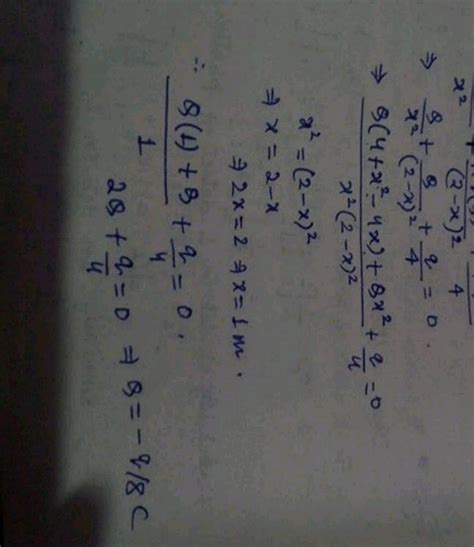 x² + (2-x)² + 4
⇒ Q/x² + Q/(2-x)² + q/4 = 0
⇒ Q(4+x²-4x) + Qx² / x²(2-x)² + q/4 = 0
x² = (2-x)²
⇒ x = 2-x
⇒ 2x = 2 ⇒ x = 1 m.
∴ Q(1) + Q / 1 + q/4 = 0.
2Q + q/4 = 0 ⇒ Q = -q/8 C